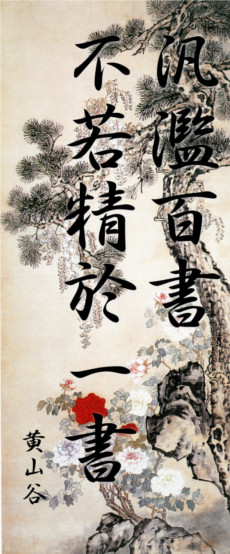 汎濫百書
不若精於一書
黃山谷